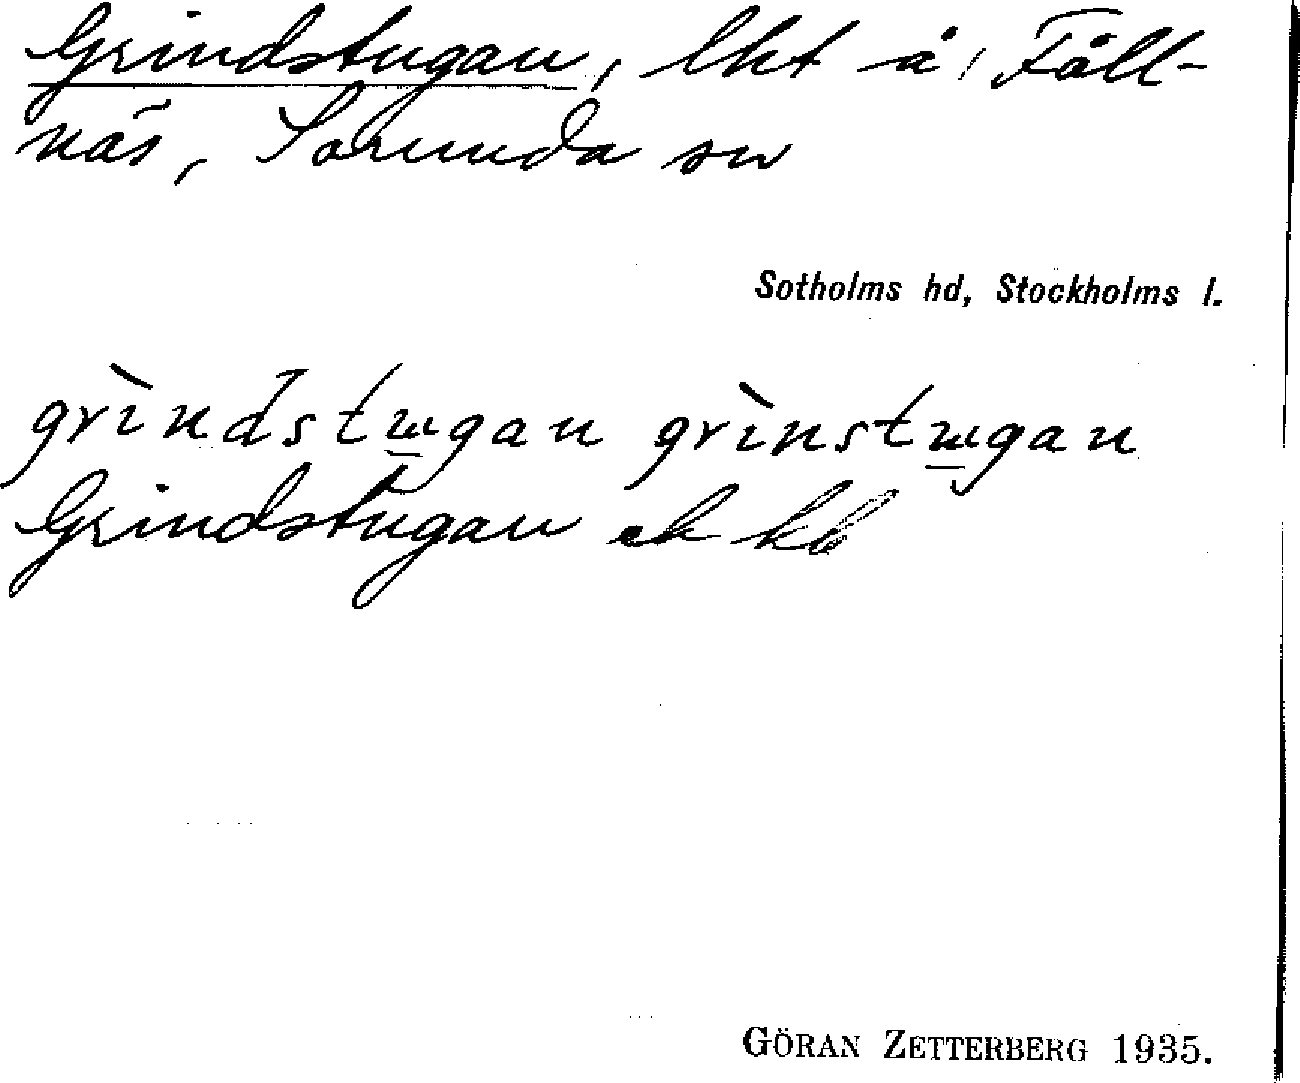 Grindstugan, lht å, Fåll-
näs, Sorunda sn
Sotholms hd, Stockholms l.
grìndstɯgan grìnstɯgan
Grindstugan ek kb
GÖRAN ZETTERBERG 1935.